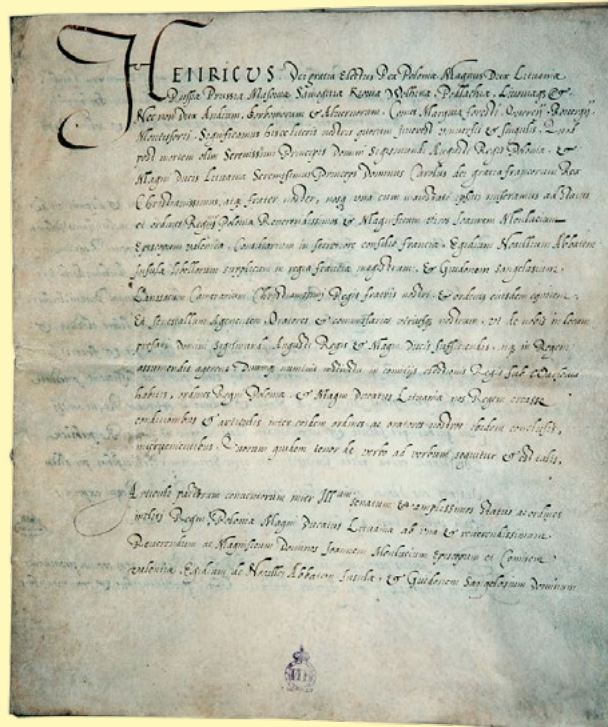 HENRICUS Dei gratia Electus Rex Poloniæ Magnus Dux Lituaniæ
Russiæ Prussiæ Masoviæ Samogitiæ Kioviæ Wolhiniæ Podlachiæ, Livoniæq, &
Nec non Dux Andium, Borboniorum & Alvernorum, Comes Marchiæ foresti Quercij Rovergij
Montisforti Significamus hisce literis nostris quorum interest universis & singulis. Quod
post mortem olim Serenissimi Principis Domini Sigismundi Augusti Regis Poloniæ, &
Magni Ducis Lituaniæ Serenissimus Princeps Dominus Carolus dei gratia francorum Rex
Christianissimus, atq frater noster, nosq una cum miseramus ad Status
et ordines Regni Poloniæ Reverendissimos & Magnificum viros Joannem Monlucium
Episcopum valentiæ, Consiliarium in secretiore consilio franciæ, Egidium Noallium Abbatem
Insulæ libellorum supplicum in regia franciæ magistrum, & Guidonem Sangelasium
Lansacum Camerarium Christianissimi Regis fratris nostri, & ordinis eiusdem equitem,
Et senescallum Agenensem Oratores, & commissarios utriusq nostrum, ut de nobis in locum
præfati Domini Sigismundi Augusti Regis & Magni Ducis sufficiendis, atq in Regem
assumendis agerent, numinis in comitijs electionis Regis sub
habitis, ordines Regni Poloniæ, & Magni Ducatus Lituaniæ nos Regem
conditionibus & articulis inter eosdem ordines ac oratores nostros ibidem conclusis,
intervenientibus Quorum quidem tenor de verbo ad verbum sequitur & est talis.
Articuli pactorum conventorum inter Ill senatum & amplissimos status ac ordines
inclyti Regni Poloniæ Magni Ducatus Lituaniæ ab una & reverendissimum
Reverendum ac Magnificum Dominos Joannem Monlucium Episcopum et Comitem
valentiæ Egidium de Noailles Abbatem Insulæ, & Guidonem Sangelasium Dominum